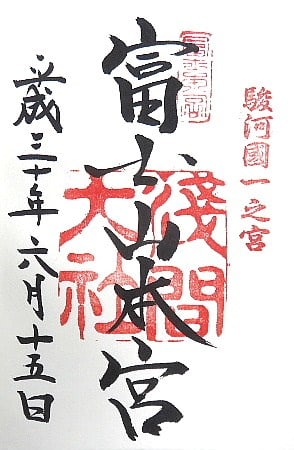 駿河國一之宮
富士山本宮
淺間
大社
平成三十年六月十五日